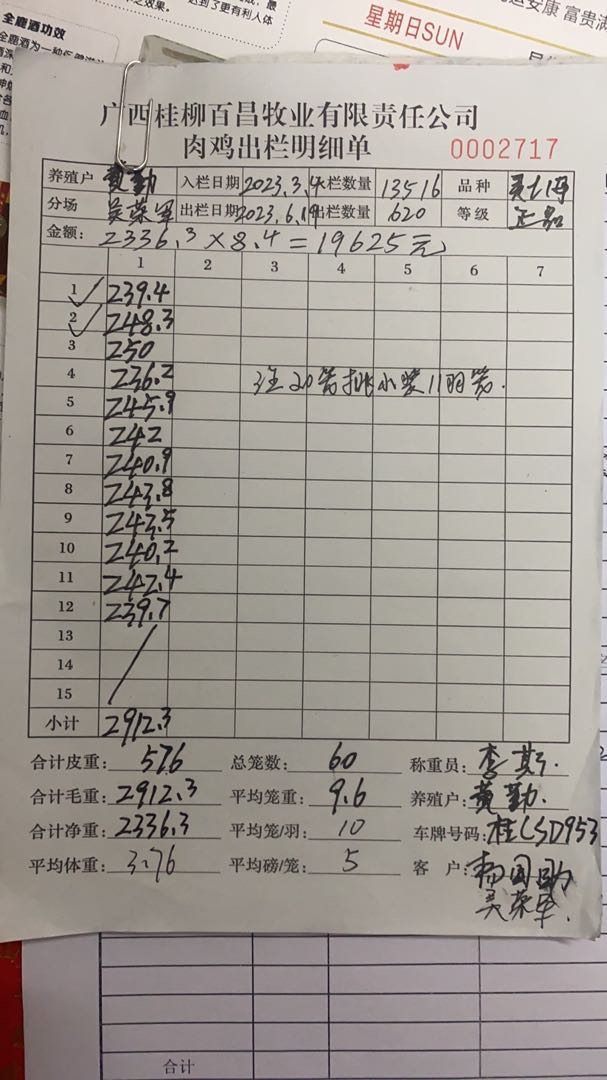 全鹿功效
星期日SUN
广西桂柳百昌牧业有限责任公司
肉鸡出栏明细单 0002717
养殖户 黄勤 入栏日期 2023.3.4 栏数量 13516 品种
分场 吴荣军 出栏日期 2023.6.19 出栏数量 620 等级 正品
金额: 2336.3×8.4=19625元
1 2 3 4 5 6 7
1 239.4
2 248.3
3 250
4 236.2 注20笼 小装11羽笼.
5 245.9
6 242
7 240.9
8 243.8
9 243.5
10 240.2
11 242.4
12 239.7
13
14
15
小计 2912.3
合计皮重: 576 总笼数: 60 称重员: 李
合计毛重: 2912.3 平均笼重: 9.6 养殖户: 黄勤.
合计净重: 2336.3 平均笼/羽: 10 车牌号码: 桂CSD953
平均体重: 3.76 平均磅/笼: 5 客 户:
吴荣军.
合计